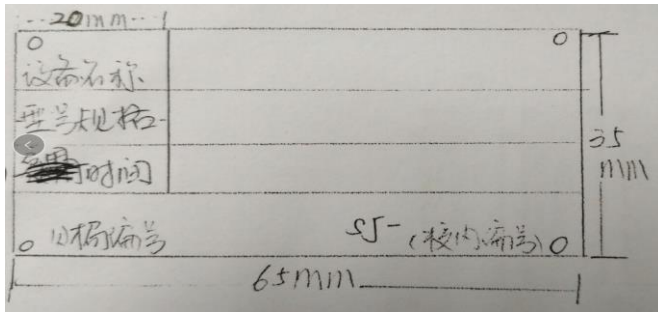 20mm
设备名称
型号规格
时间
编号 SJ- (校内编号)
35
mm
65mm